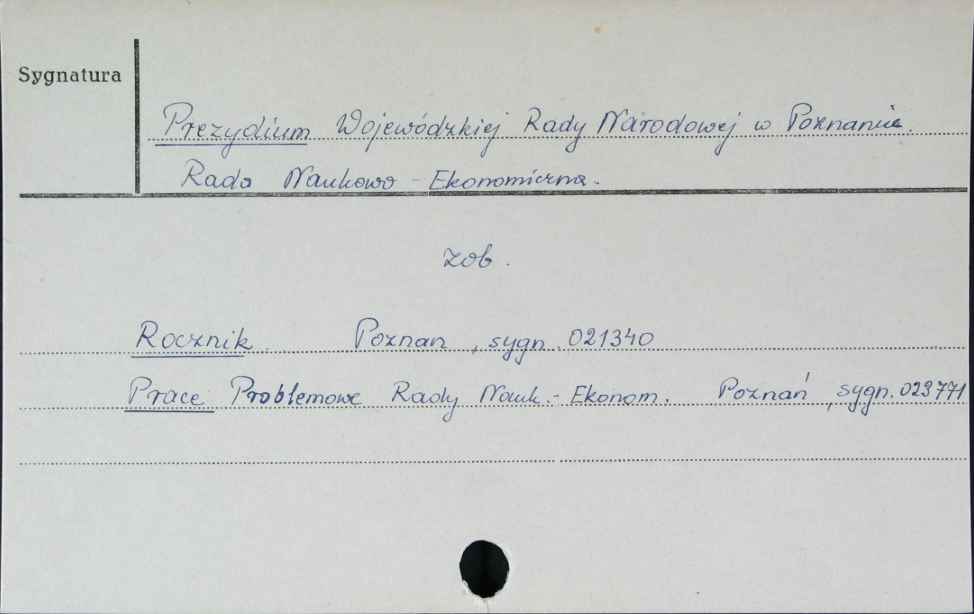 Sygnatura
Prezydium Wojewódzkiej Rady Narodowej w Poznaniu.
Rada Naukowo - Ekonomiczna.
zob.
Rocznik. Poznan, sygn. 021340
Prace Problemowe Rady Nauk.- Ekonom. Poznań, sygn. 023771